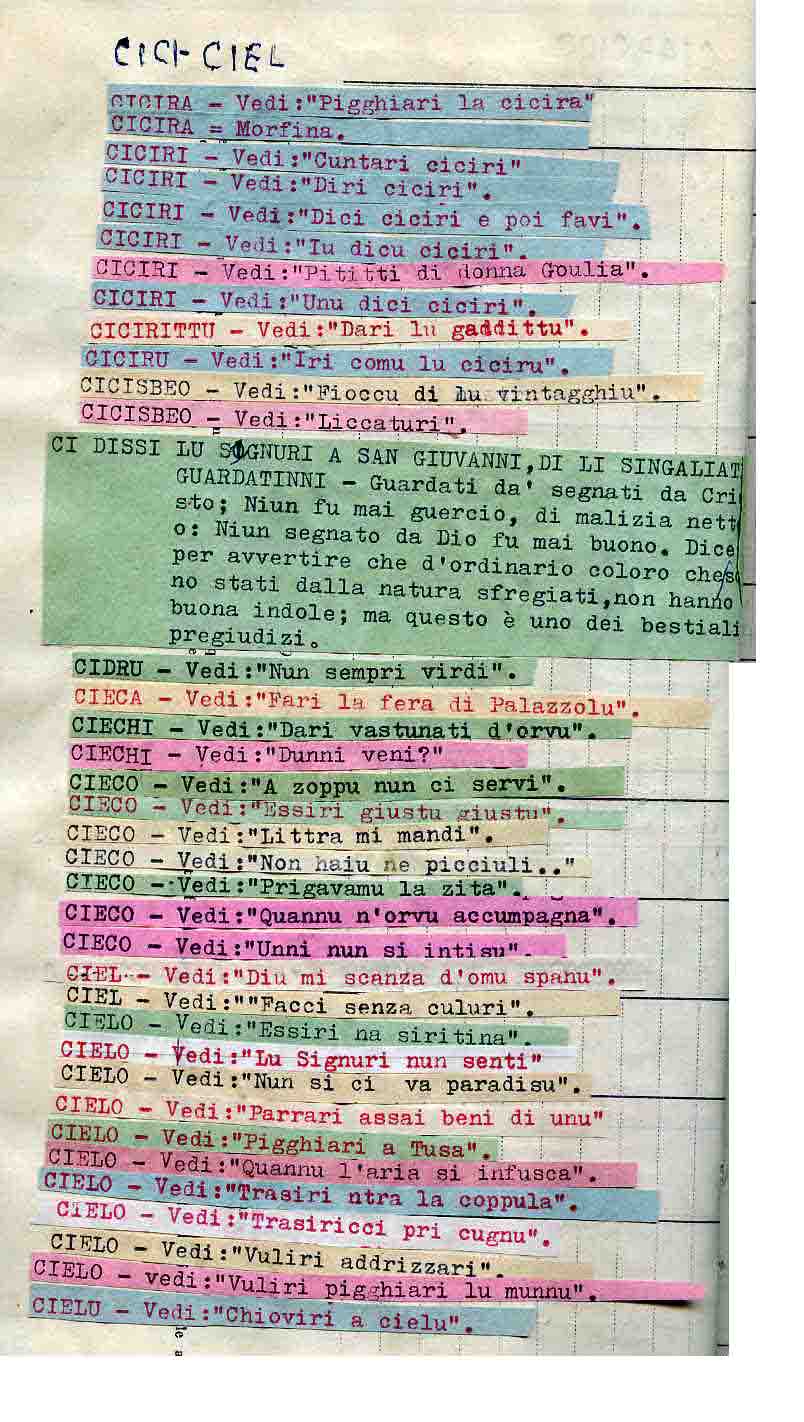 CICI-CIEL
CICIRA - Vedi:"Pigghiari la cicira"
CICIRA = Morfina.
CICIRI - Vedi:"Cuntari ciciri"
CICIRI - Vedi:"Diri ciciri".
CICIRI - Vedi:"Dici ciciri e poi favi".
CICIRI - Vedi:"Iu dicu ciciri".
CICIRI - Vedi:"Pititti di donna Goulia".
CICIRI - Vedi:"Unu dici ciciri".
CICIRITTU - Vedi:"Dari lu gaddittu".
CICIRU - Vedi:"Iri comu lu ciciru".
CICISBEO - Vedi:"Fioccu di lu vintagghiu".
CICISBEO - Vedi:"Liccaturi".
CI DISSI LU SIGNURI A SAN GIUVANNI,DI LI SINGALIAT
GUARDATINNI - Guardati da' segnati da Cri
sto; Niun fu mai guercio, di malizia nett
o: Niun segnato da Dio fu mai buono. Dice
per avvertire che d'ordinario coloro che
no stati dalla natura sfregiati,non hanno
buona indole; ma questo è uno dei bestiali
pregiudizi.
CIDRU - Vedi:"Nun sempri virdi".
CIECA - Vedi:"Fari la fera di Palazzolu".
CIECHI - Vedi:"Dari vastunati d'orvu".
CIECHI - Vedi:"Dunni veni?"
CIECO - Vedi:"A zoppu nun ci servi".
CIECO - Vedi:"Essiri giustu giustu".
CIECO - Vedi:"Littra mi mandi".
CIECO - Vedi:"Non haiu ne picciuli.."
CIECO - Vedi:"Prigavamu la zita".
CIECO - Vedi:"Quannu n'orvu accumpagna".
CIECO - Vedi:"Unni nun si intisu".
CIEL - Vedi:"Diu mi scanza d'omu spanu".
CIEL - Vedi:""Facci senza culuri".
CIELO - Vedi:"Essiri na siritina".
CIELO - Vedi:"Lu Signuri nun senti"
CIELO - Vedi:"Nun si ci va paradisu".
CIELO - Vedi:"Parrari assai beni di unu"
CIELO - Vedi:"Pigghiari a Tusa".
CIELO - Vedi:"Quannu l'aria si infusca".
CIELO - Vedi:"Trasiri ntra la coppula".
CIELO - Vedi:"Trasiricci pri cugnu".
CIELO - Vedi:"Vuliri addrizzari".
CIELO - vedi:"Vuliri pigghiari lu munnu".
CIELU - Vedi:"Chioviri a cielu".